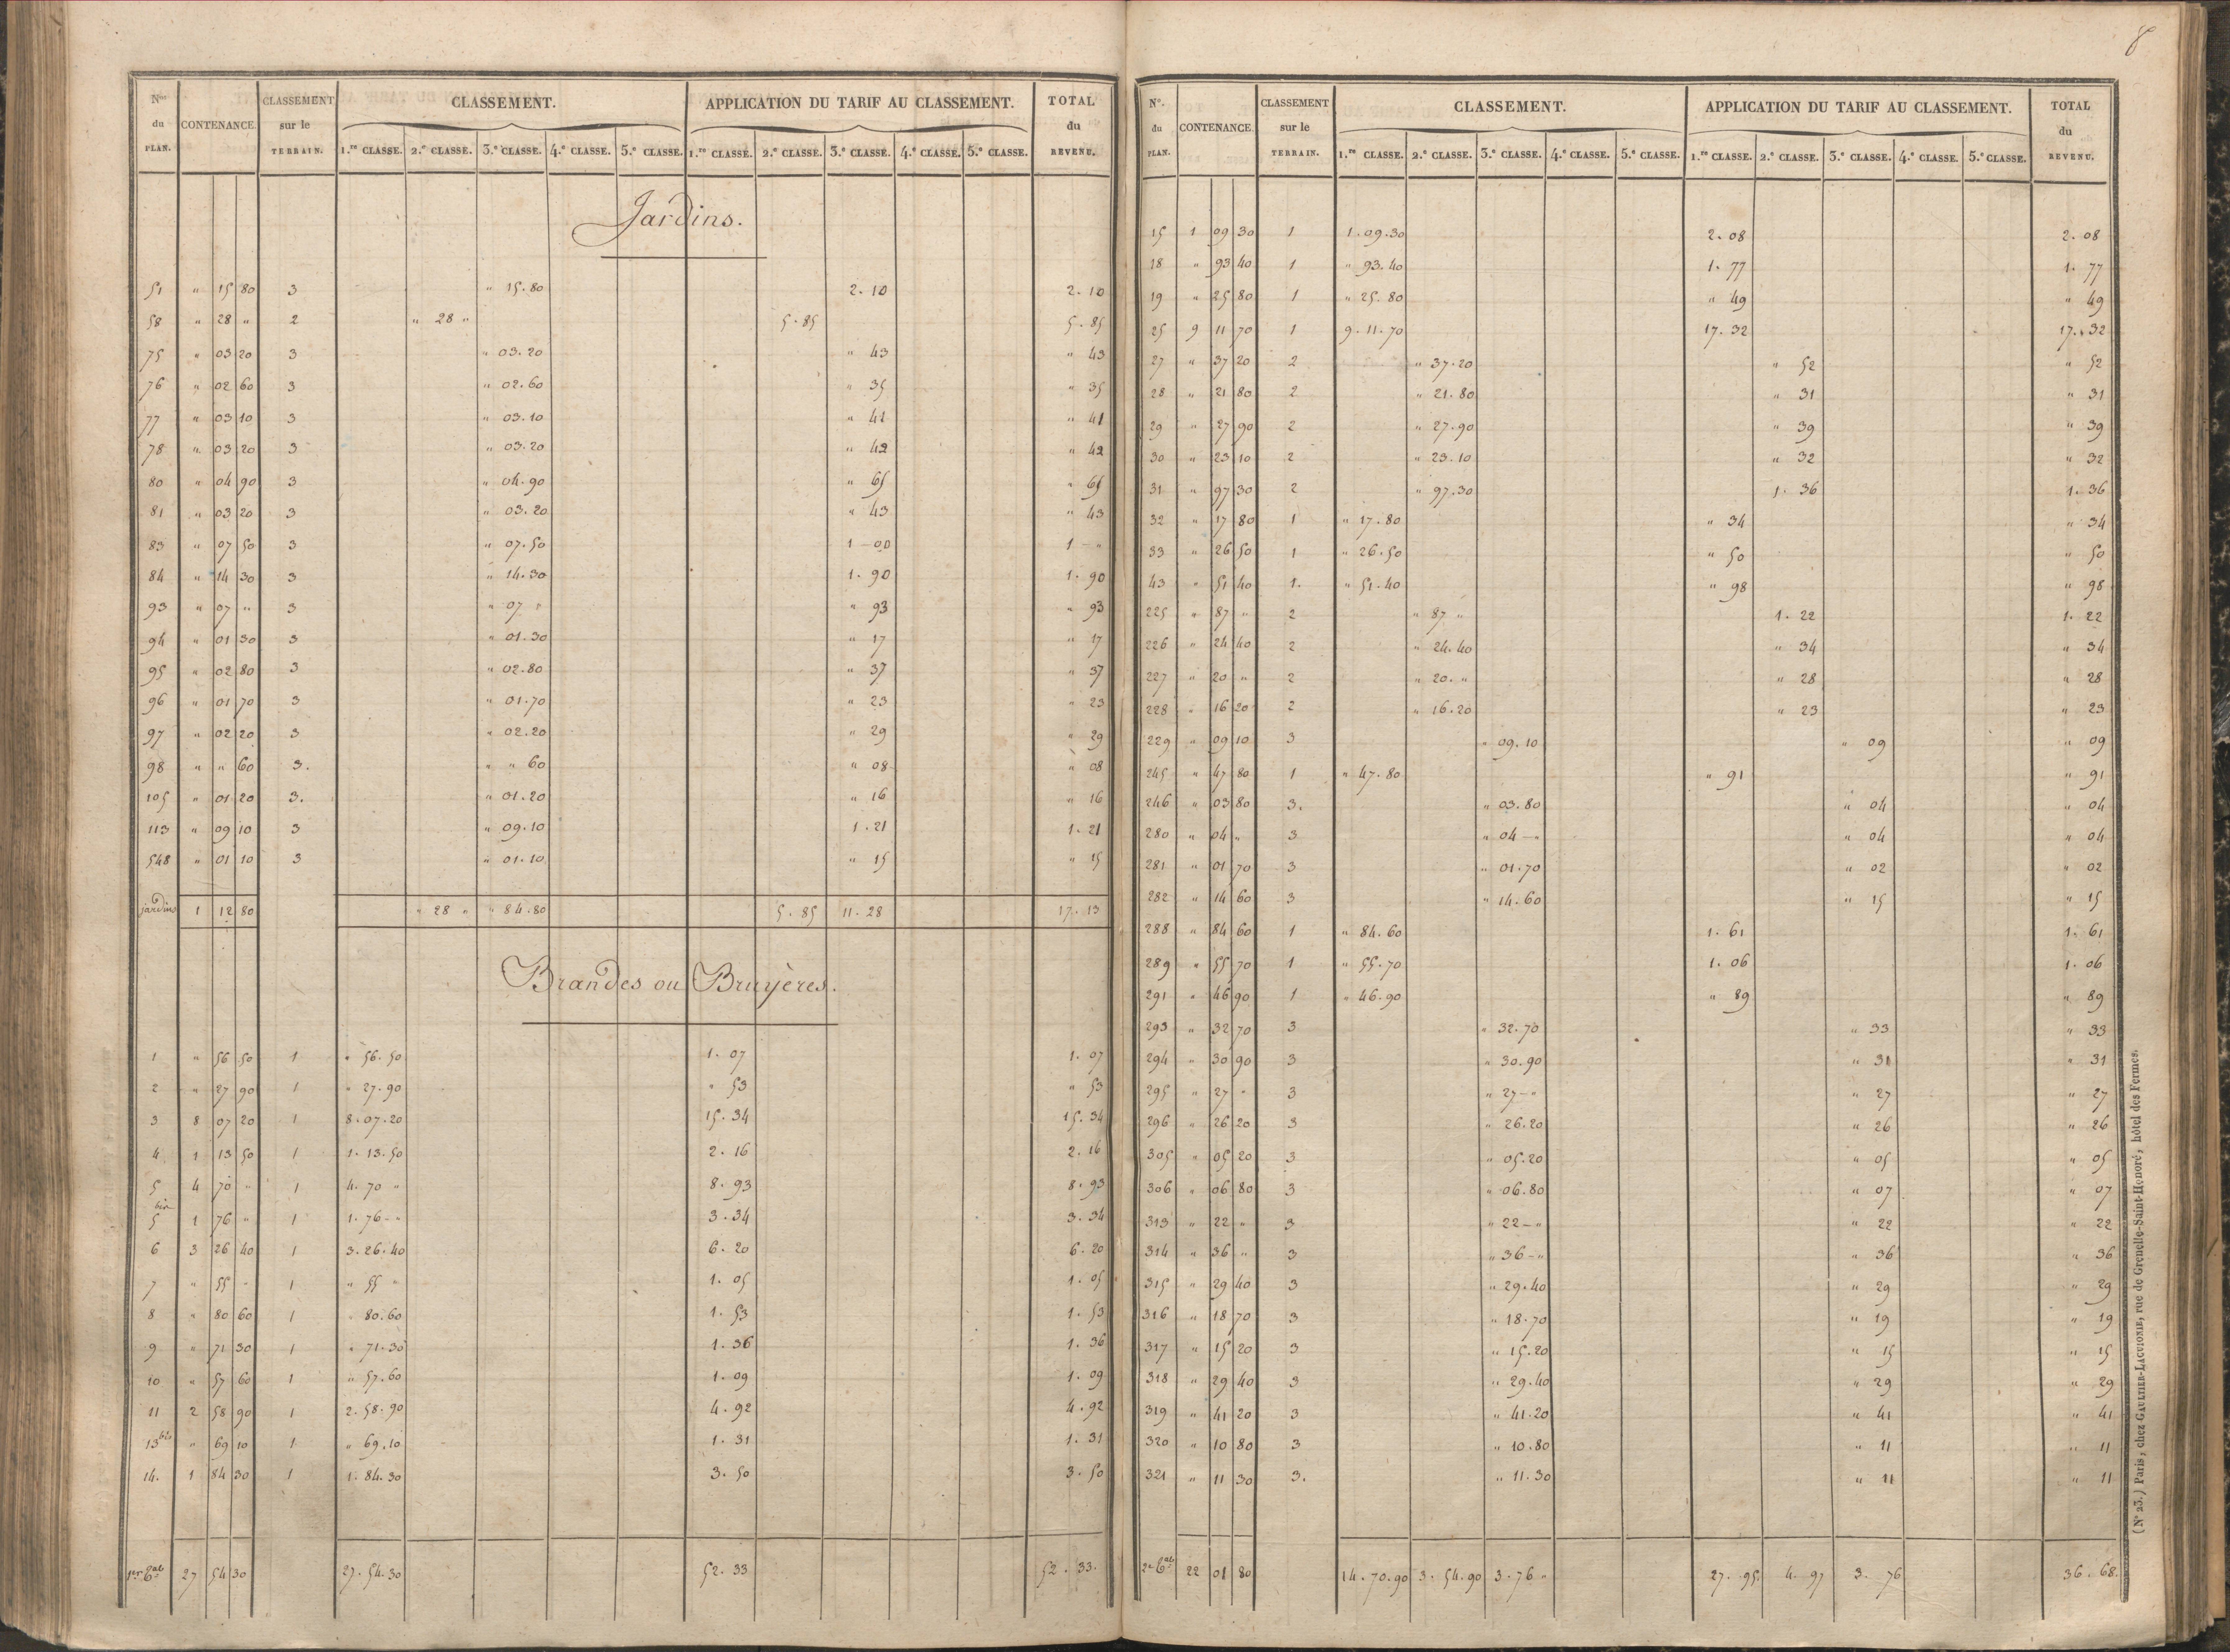 8
Nos du PLAN. CONTENANCE. CLASSEMENT sur le TERRAIN. CLASSEMENT. APPLICATION DU TARIF AU CLASSEMENT. TOTAL du REVENU.
1.re CLASSE. 2.e CLASSE. 3.e CLASSE. 4.e CLASSE. 5.e CLASSE. 1.re CLASSE. 2.e CLASSE. 3.e CLASSE. 4.e CLASSE. 5.e CLASSE.
Jardins.
51 " 15 80 3 " 15.80 2.10 2.10
58 " 28 " 2 " 28 " 5.85 5.85
75 " 03 20 3 " 03.20 " 43 " 43
76 " 02 60 3 " 02.60 " 35 " 35
77 " 03 10 3 " 03.10 " 41 " 41
78 " 03 20 3 " 03.20 " 42 " 42
80 " 04 90 3 " 04.90 " 65 " 65
81 " 03 20 3 " 03.20 " 43 " 43
83 " 07 50 3 " 07.50 1 - 00 1 - "
84 " 14 30 3 " 14.30 1.90 1.90
93 " 07 " 3 " 07 " " 93 " 93
94 " 01 30 3 " 01.30 " 17 " 17
95 " 02 80 3 " 02.80 " 37 " 37
96 " 01 70 3 " 01.70 " 23 " 23
97 " 02 20 3 " 02.20 " 29 " 29
98 " " 60 3. " " 60 " 08 " 08
105 " 01 20 3. " 01.20 " 16 " 16
113 " 09 10 3 " 09.10 1.21 1.21
548 " 01 10 3 " 01.10 " 15 " 15
jardins 1 12 80 " 28 " " 84.80 5.85 11.28 17.13
Brandes ou Bruyères.
1 " 56 50 1 " 56.50 1.07 1.07
2 " 27 90 1 " 27.90 " 53 " 53
3 8 07 20 1 8.07.20 15.34 15.34
4 1 13 50 1 1.13.50 2.16 2.16
5 4 70 " 1 4.70 " 8.93 8.93
5 bis 1 76 " 1 1.76 - " 3.34 3.34
6 3 26 40 1 3.26.40 6.20 6.20
7 " 55 " 1 " 55 " 1.05 1.05
8 " 80 60 1 " 80.60 1.53 1.53
9 " 71 30 1 " 71.30 1.36 1.36
10 " 57 60 1 " 57.60 1.09 1.09
11 2 58 90 1 2.58.90 4.92 4.92
13 bis " 69 10 1 " 69.10 1.31 1.31
14. 1 84 30 1 1.84.30 3.50 3.50
27 54 30 27.54.30 52.33 52.33.
No. du PLAN. CONTENANCE. CLASSEMENT sur le TERRAIN. CLASSEMENT. APPLICATION DU TARIF AU CLASSEMENT. TOTAL du REVENU.
1.re CLASSE. 2.e CLASSE. 3.e CLASSE. 4.e CLASSE. 5.e CLASSE. 1.re CLASSE. 2.e CLASSE. 3.e CLASSE. 4.e CLASSE. 5.e CLASSE.
15 1 09 30 1 1.09.30 2.08 2.08
18 " 93 40 1 " 93.40 1.77 1.77
19 " 25 80 1 " 25.80 " 49 " 49
25 9 11 70 1 9.11.70 17.32 17.32
27 " 37 20 2 " 37.20 " 52 " 52
28 " 21 80 2 " 21.80 " 31 " 31
29 " 27 90 2 " 27.90 " 39 " 39
30 " 23 10 2 " 23.10 " 32 " 32
31 " 97 30 2 " 97.30 1.36 1.36
32 " 17 80 1 " 17.80 " 34 " 34
33 " 26 50 1 " 26.50 " 50 " 50
43 " 51 40 1. " 51.40 " 98 " 98
225 " 87 " 2 " 87 " 1.22 1.22
226 " 24 40 2 " 24.40 " 34 " 34
227 " 20 " 2 " 20. " " 28 " 28
228 " 16 20 2 " 16.20 " 23 " 23
229 " 09 10 3 " 09.10 " 09 " 09
245 " 47 80 1 " 47.80 " 91 " 91
246 " 03 80 3. " 03.80 " 04 " 04
280 " 04 " 3 " 04 - " " 04 " 04
281 " 01 70 3 " 01.70 " 02 " 02
282 " 14 60 3 " 14.60 " 15 " 15
288 " 84 60 1 " 84.60 1.61 1.61
289 " 55 70 1 " 55.70 1.06 1.06
291 " 46 90 1 " 46.90 " 89 " 89
293 " 32 70 3 " 32.70 " 33 " 33
294 " 30 90 3 " 30.90 " 31 " 31
295 " 27 " 3 " 27 - " " 27 " 27
296 " 26 20 3 " 26.20 " 26 " 26
305 " 05 20 3 " 05.20 " 05 " 05
306 " 06 80 3 " 06.80 " 07 " 07
313 " 22 " 3 " 22 - " " 22 " 22
314 " 36 " 3 " 36 - " " 36 " 36
315 " 29 40 3 " 29.40 " 29 " 29
316 " 18 70 3 " 18.70 " 19 " 19
317 " 15 20 3 " 15.20 " 15 " 15
318 " 29 40 3 " 29.40 " 29 " 29
319 " 41 20 3 " 41.20 " 41 " 41
320 " 10 80 3 " 10.80 " 11 " 11
321 " 11 30 3. " 11.30 " 11 " 11
22 01 80 14.70.90 3.54.90 3.76 " 27.95. 4.97 3.76 36.68.
(No 23.) Paris, chez GAULTIER-LAGUIONIE, rue de Grenelle-Saint-Honoré, hôtel des Fermes.